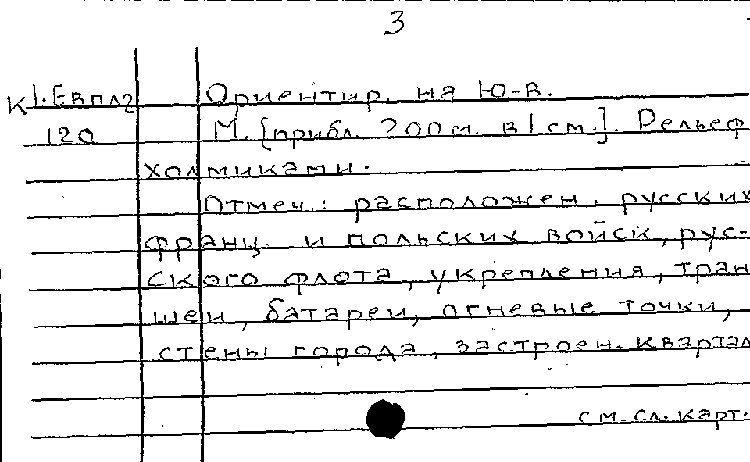 3
К 1. Евпл2 Ориентир. на Ю-В.
120 М. [прибл. 200м. в 1 см.]. Рельеф
холмиками.
Отмеч.: расположен. русских
франц. и польских войск, рус-
ского флота, укрепления, тран
шеи, батареи, огневые точки,
стены города, застроен. квартал
см. сл. карт.